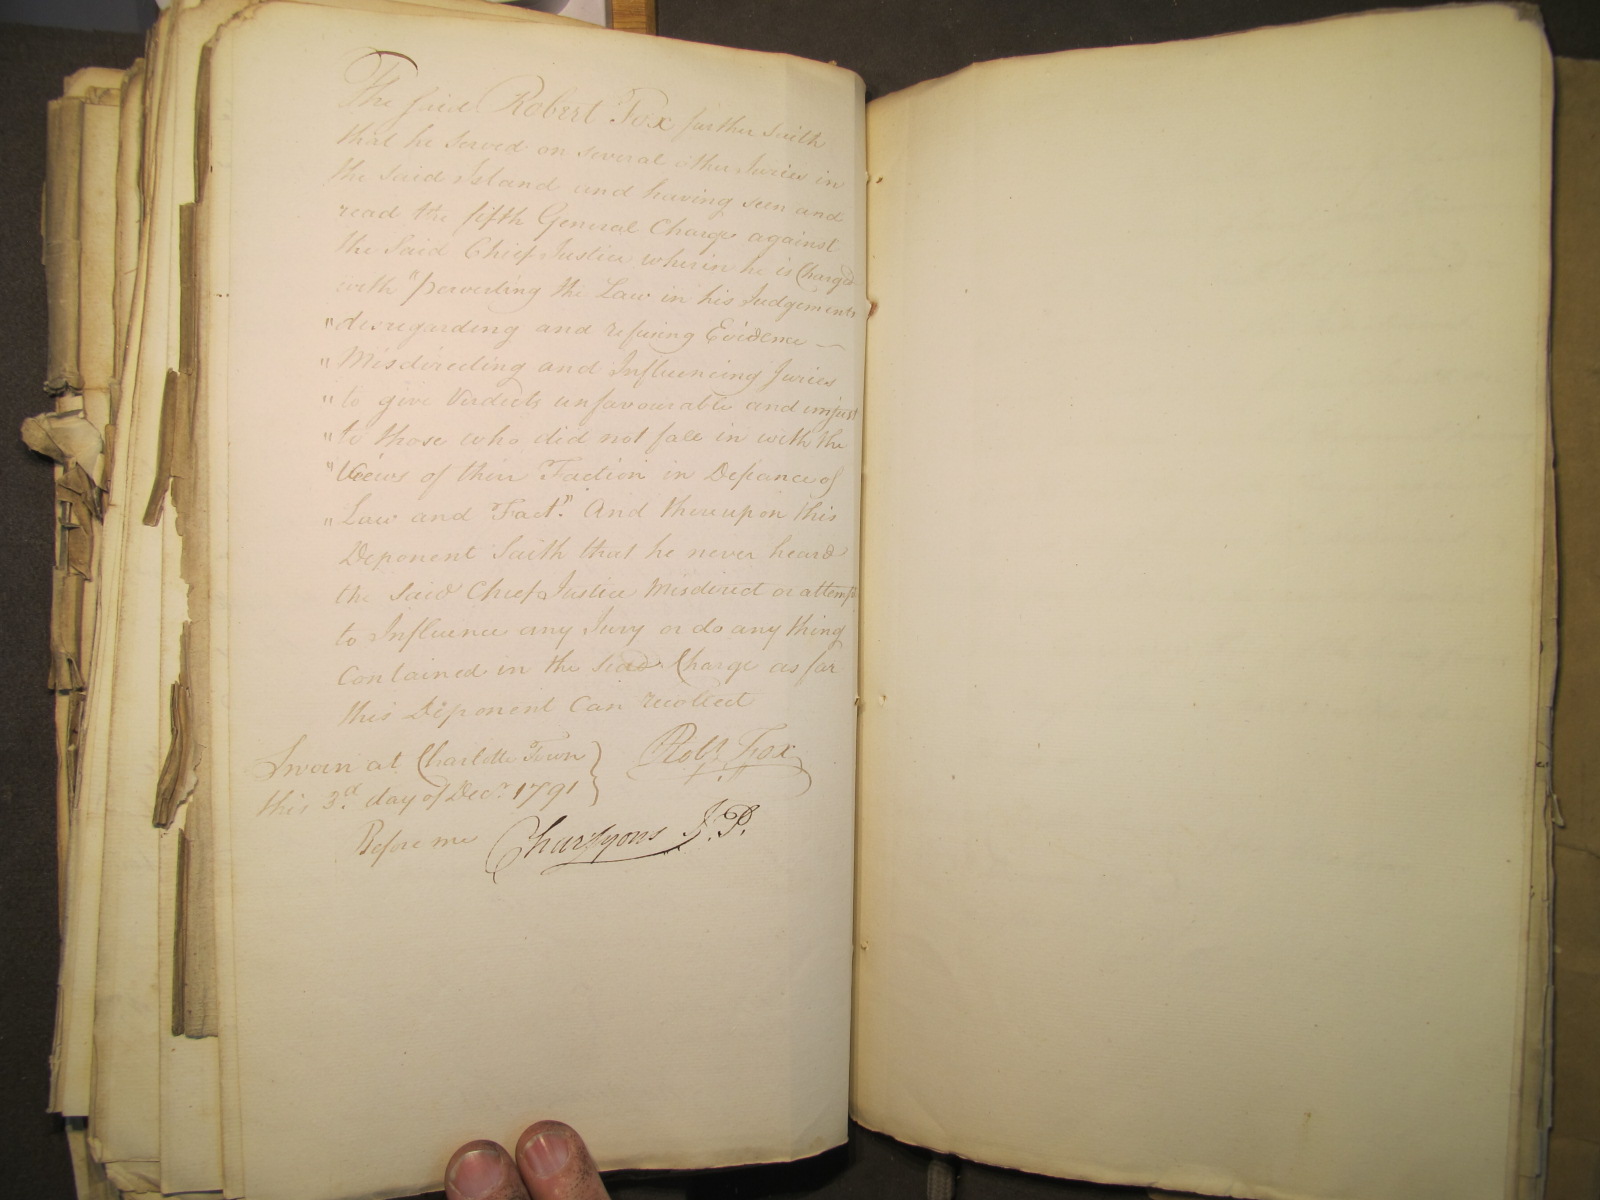 The said Robert Fox farther Saith
that he served on several other Juries in
the said Island and having seen and
read the fifth General Charge against
the Said Chief Justice wherin he is Charged
with "perverting the Law in his Judgements
"disregarding and refusing Evidence —
"Misdirecting and Influencing Juries
"to give Verdicts unfavourable and unjust
"to those who did not fall in with the
"Views of their Faction in Defiance of
"Law and Fact". And thereupon this
Deponent Saith that he never heard
the Said Chief Justice Misdirect or attempt
to Influence any Jury or do any thing
Contained in the Said Charge as far
this Deponent Can recollect
Sworn at Charlotte Town
this 3d. day of Decr. 1791
Robt Fox
Before me Chas Lyons J.P.